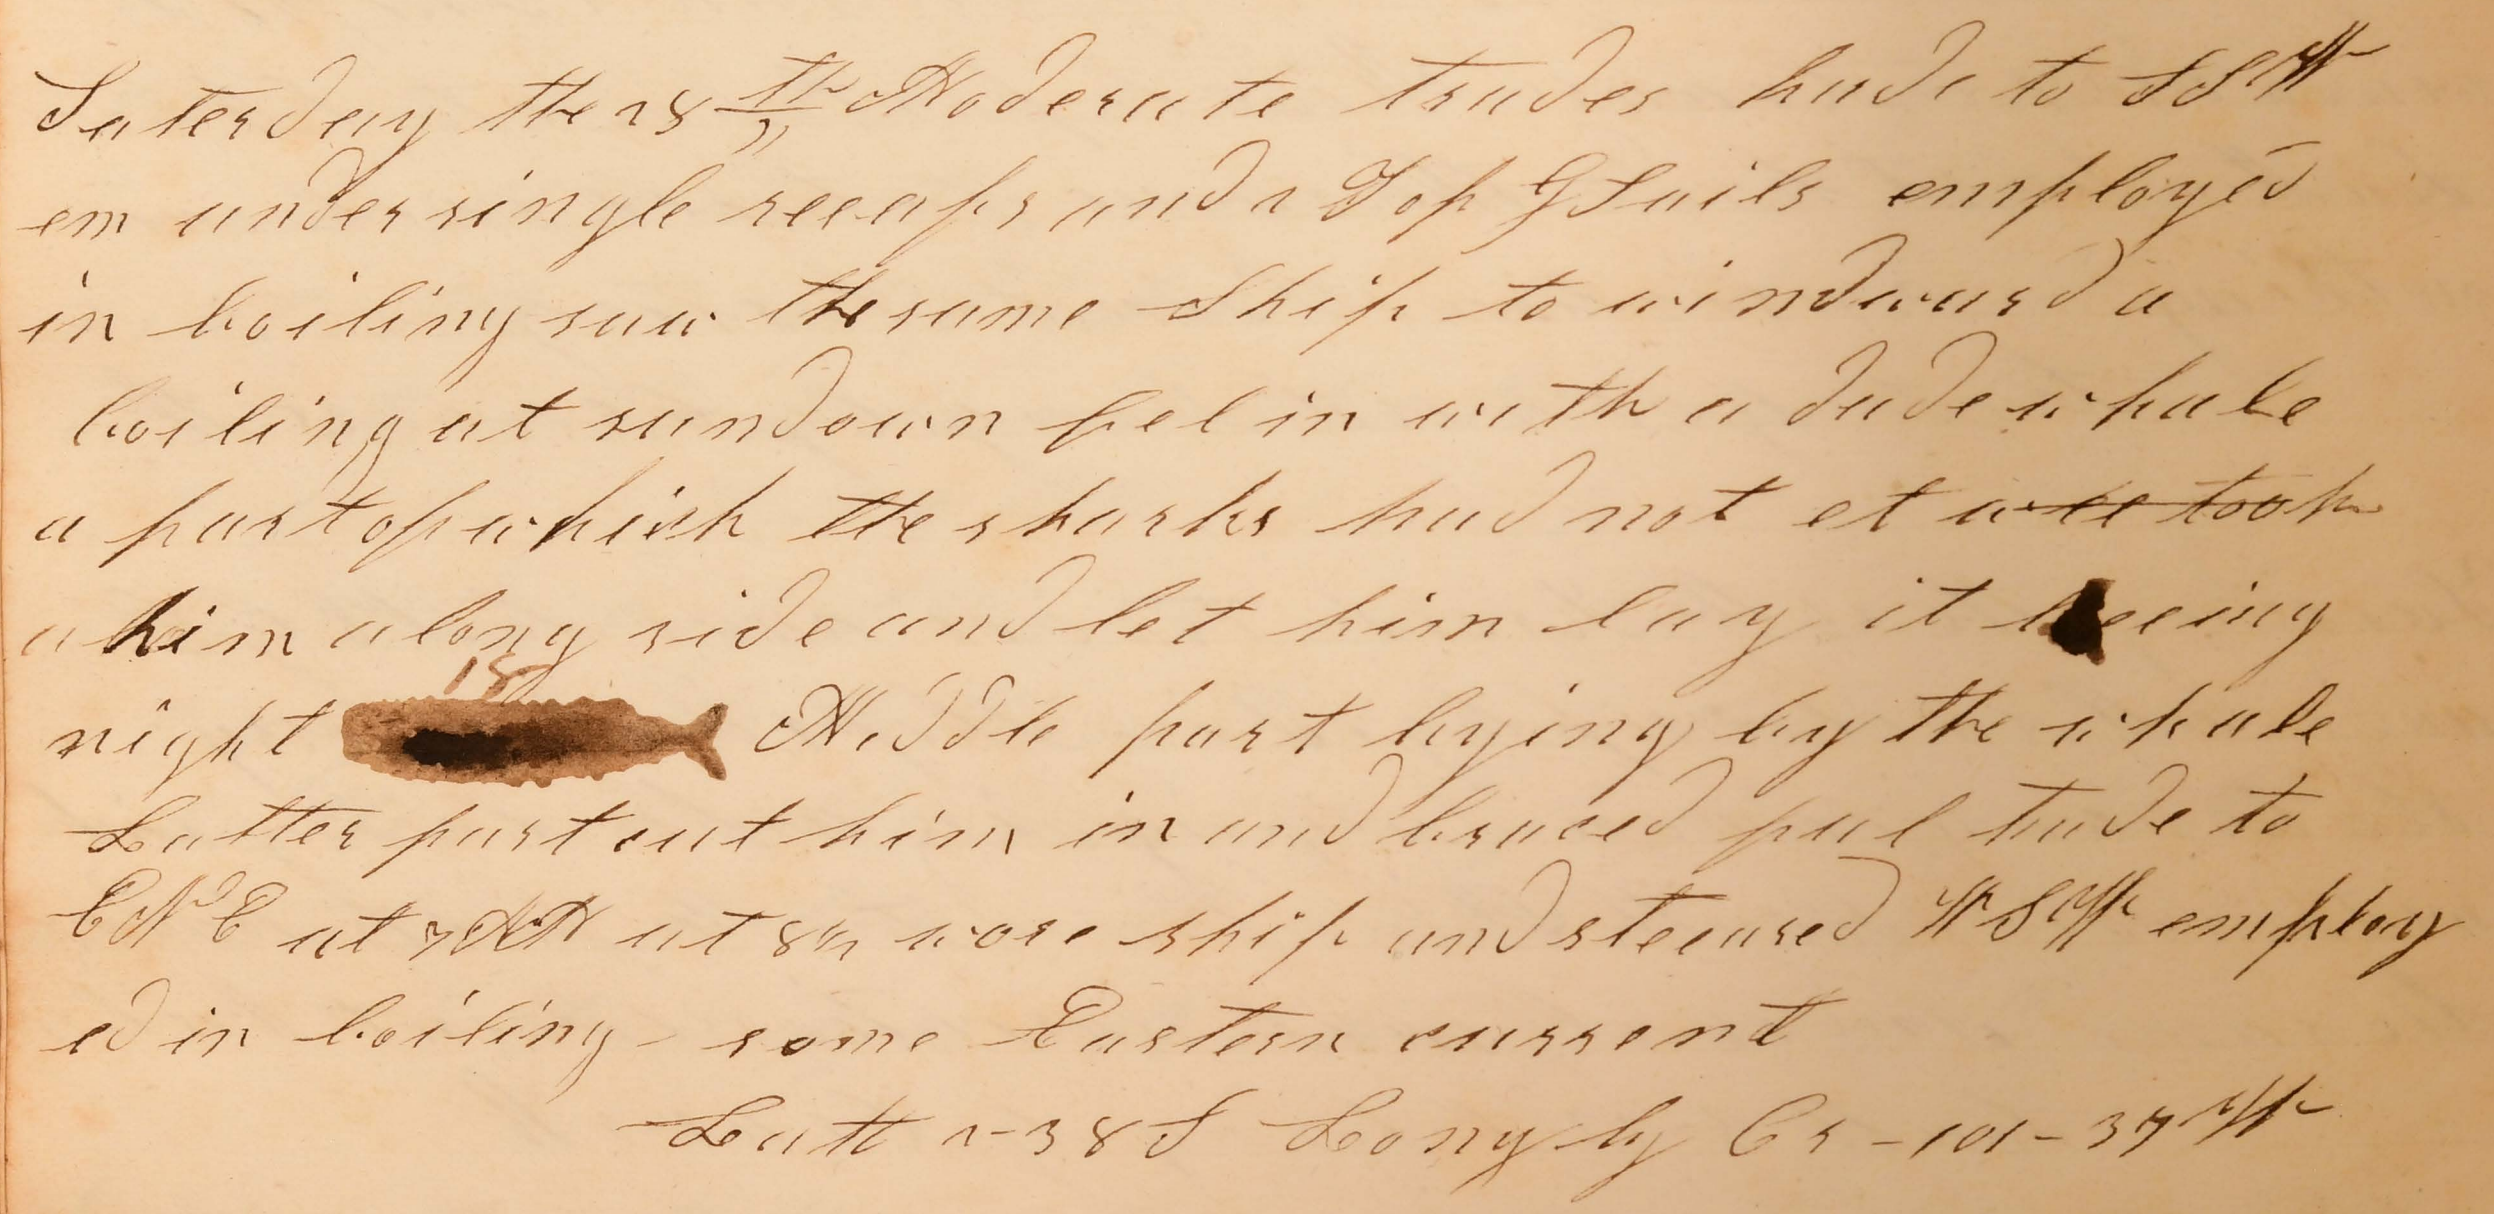 Saterday the 28 th Moderate trades hade to SSW
em under single reeafs and 2 Top G Sails employed
in boiling saw the same Ship to windward a
boiling at sundown fel in with a dade whale
a part of which the sharks had not et wee took
a him along side and let him lay it beeing
15
night Middle part lying by the whale
Latter part cut him in and braced ful hade to
ENE at 7 AM at 8 m wore ship and steeared WSW employ
ed in boiling - some Eastern current
Latt 2-38 S Long by Cr -101-37 W